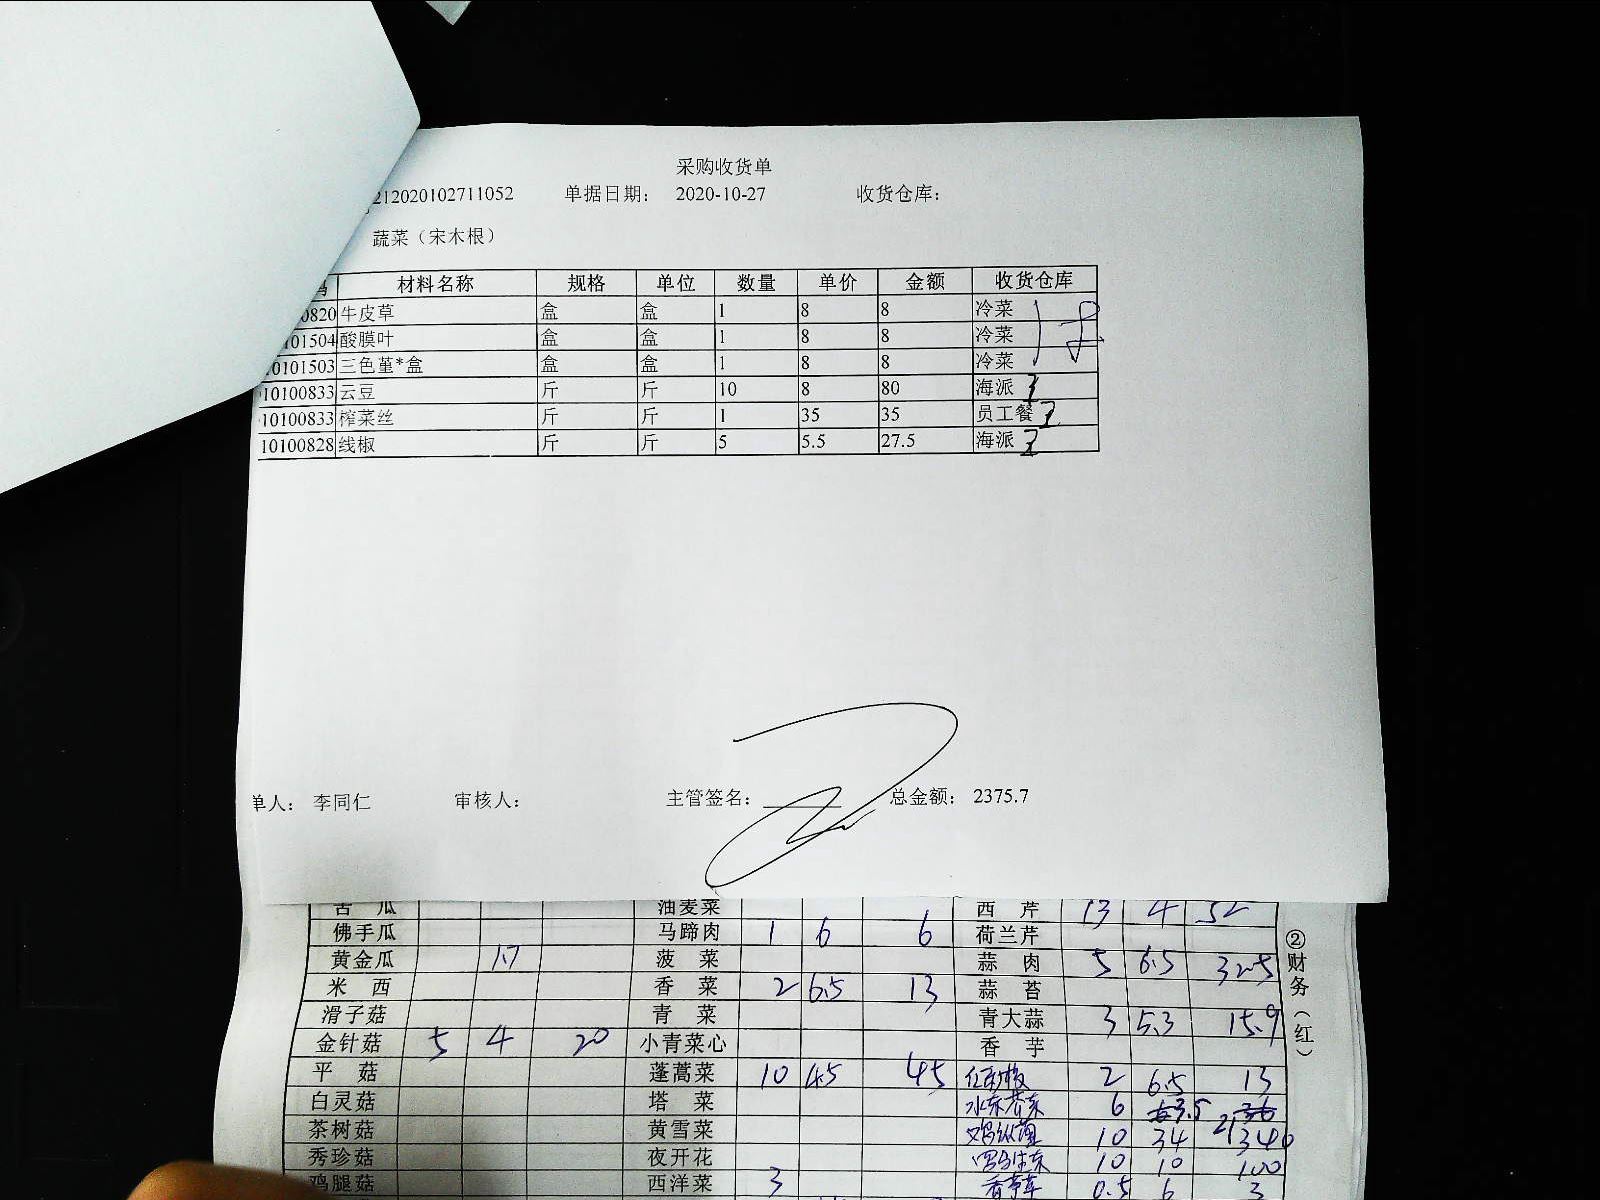 采购收货单
212020102711052 单据日期： 2020-10-27 收货仓库：
蔬菜（宋木根）
材料名称 规格 单位 数量 单价 金额 收货仓库
0820 牛皮草 盒 盒 1 8 8 冷菜
10101504 酸膜叶 盒 盒 1 8 8 冷菜
10101503 三色堇*盒 盒 盒 1 8 8 冷菜
10100833 云豆 斤 斤 10 8 80 海派
10100833 榨菜丝 斤 斤 1 35 35 员工餐
10100828 线椒 斤 斤 5 5.5 27.5 海派
单人： 李同仁 审核人： 主管签名： 总金额： 2375.7
苦瓜 油麦菜 西芹 13 4 52
佛手瓜 马蹄肉 1 6 6 荷兰芹
黄金瓜 菠菜 蒜肉 5 6.5 32.5
米西 香菜 2 6.5 13 蒜苔
滑子菇 青菜 青大蒜 3 5.3 15.9
金针菇 5 4 20 小青菜心 香芋
平菇 蓬蒿菜 10 4.5 45 2 6.5 13
白灵菇 塔菜 6 3.5
茶树菇 黄雪菜 10 34 340
秀珍菇 夜开花 10 10 100
鸡腿菇 西洋菜 3 香茅草 0.5 6 3
②财务（红）